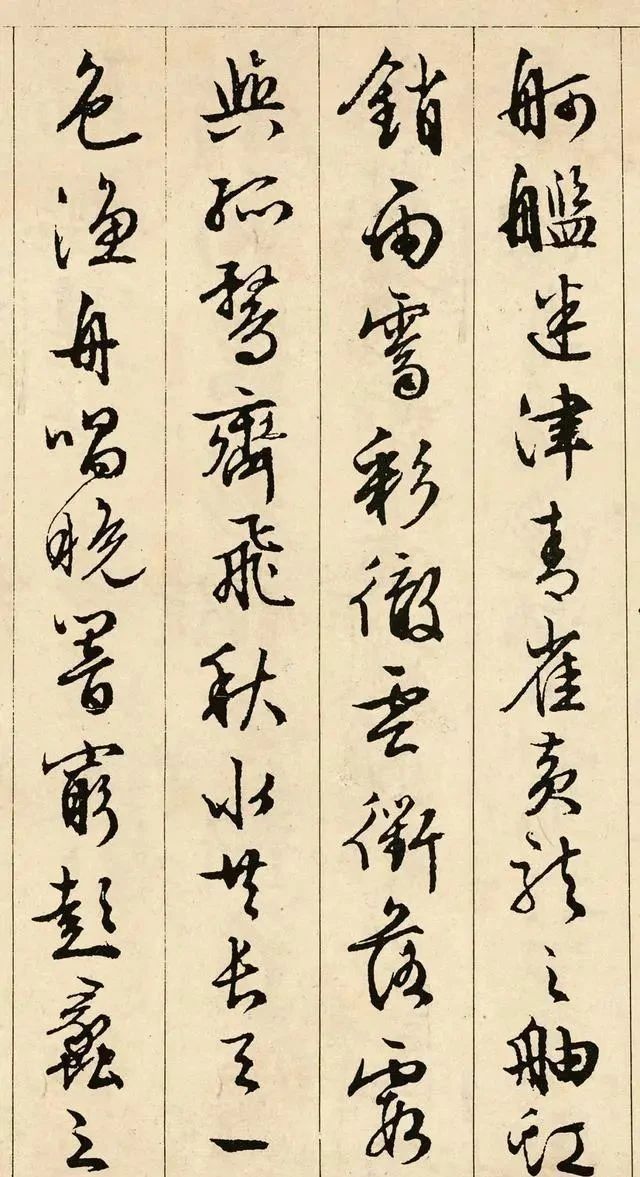 舸艦迷津青雀黃龍之舳虹
銷雨霽彩徹雲衢落霞
與孤鶩齊飛秋水共長天一
色漁舟唱晚響窮彭蠡之